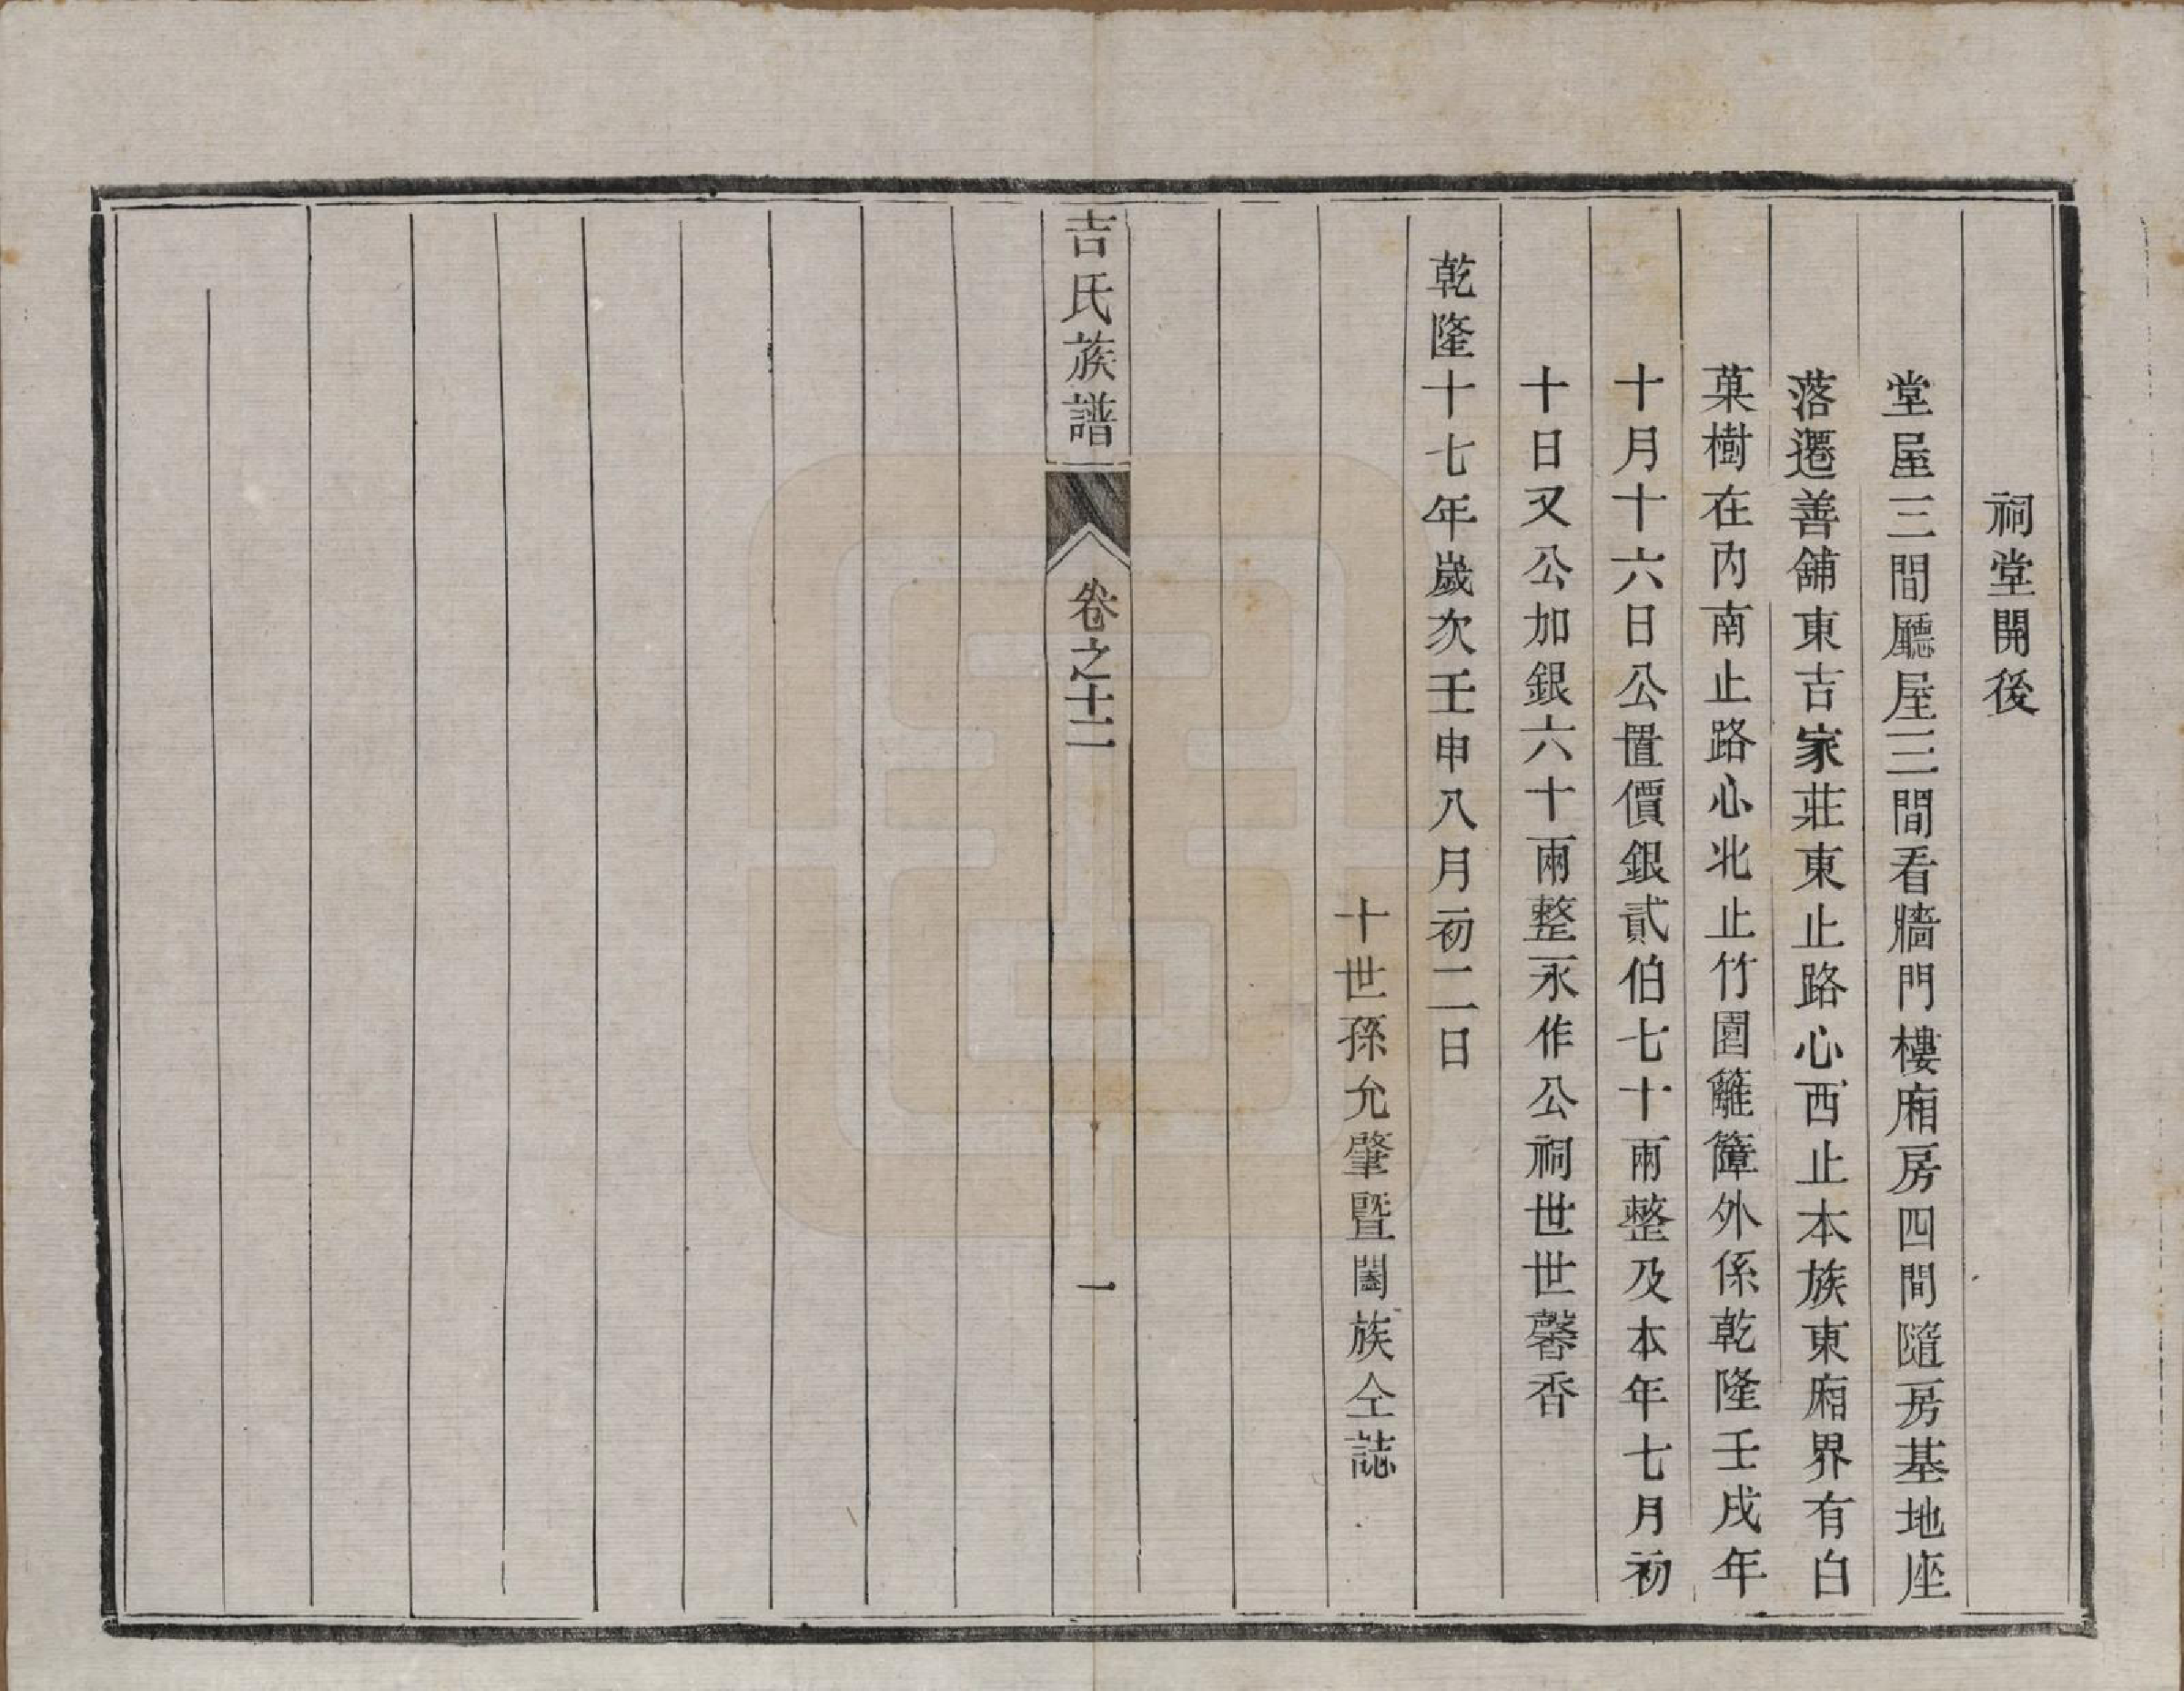 祠堂開後
堂屋三間廳屋三間看牆門樓廂房四間隨房基地座
落遷善舖東吉家莊東止路心西止本族東廂界有白
菓樹在內南止路心北止竹園籬籬外係乾隆壬戌年
十月十六日公置價銀貳伯七十兩整及本年七月初
十日又公加銀六十兩整永作公祠世世馨香
乾隆十七年歲次壬申八月初二日
十世孫允肇暨闔族仝誌
吉氏族譜 卷之十二 一